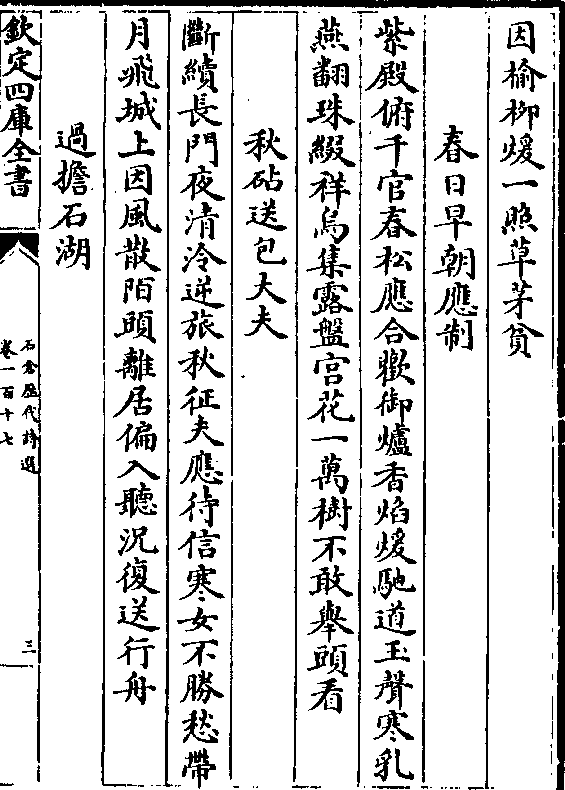 因榆柳煖一照草茅貧
春日早朝應制
紫殿俯千官春松應合歡御爐香焰煖馳道玉聲寒乳
燕翻珠綴祥烏集露盤宫花一萬樹不敢舉頭看
秋砧送包大夫
斷續長門夜清泠逆旅秋征夫應待信寒女不勝愁帶
月飛城上因風散陌頭離居偏入聽況復送行舟
過擔石湖
欽定四庫全書
石倉歷代詩選
卷一百十七
三